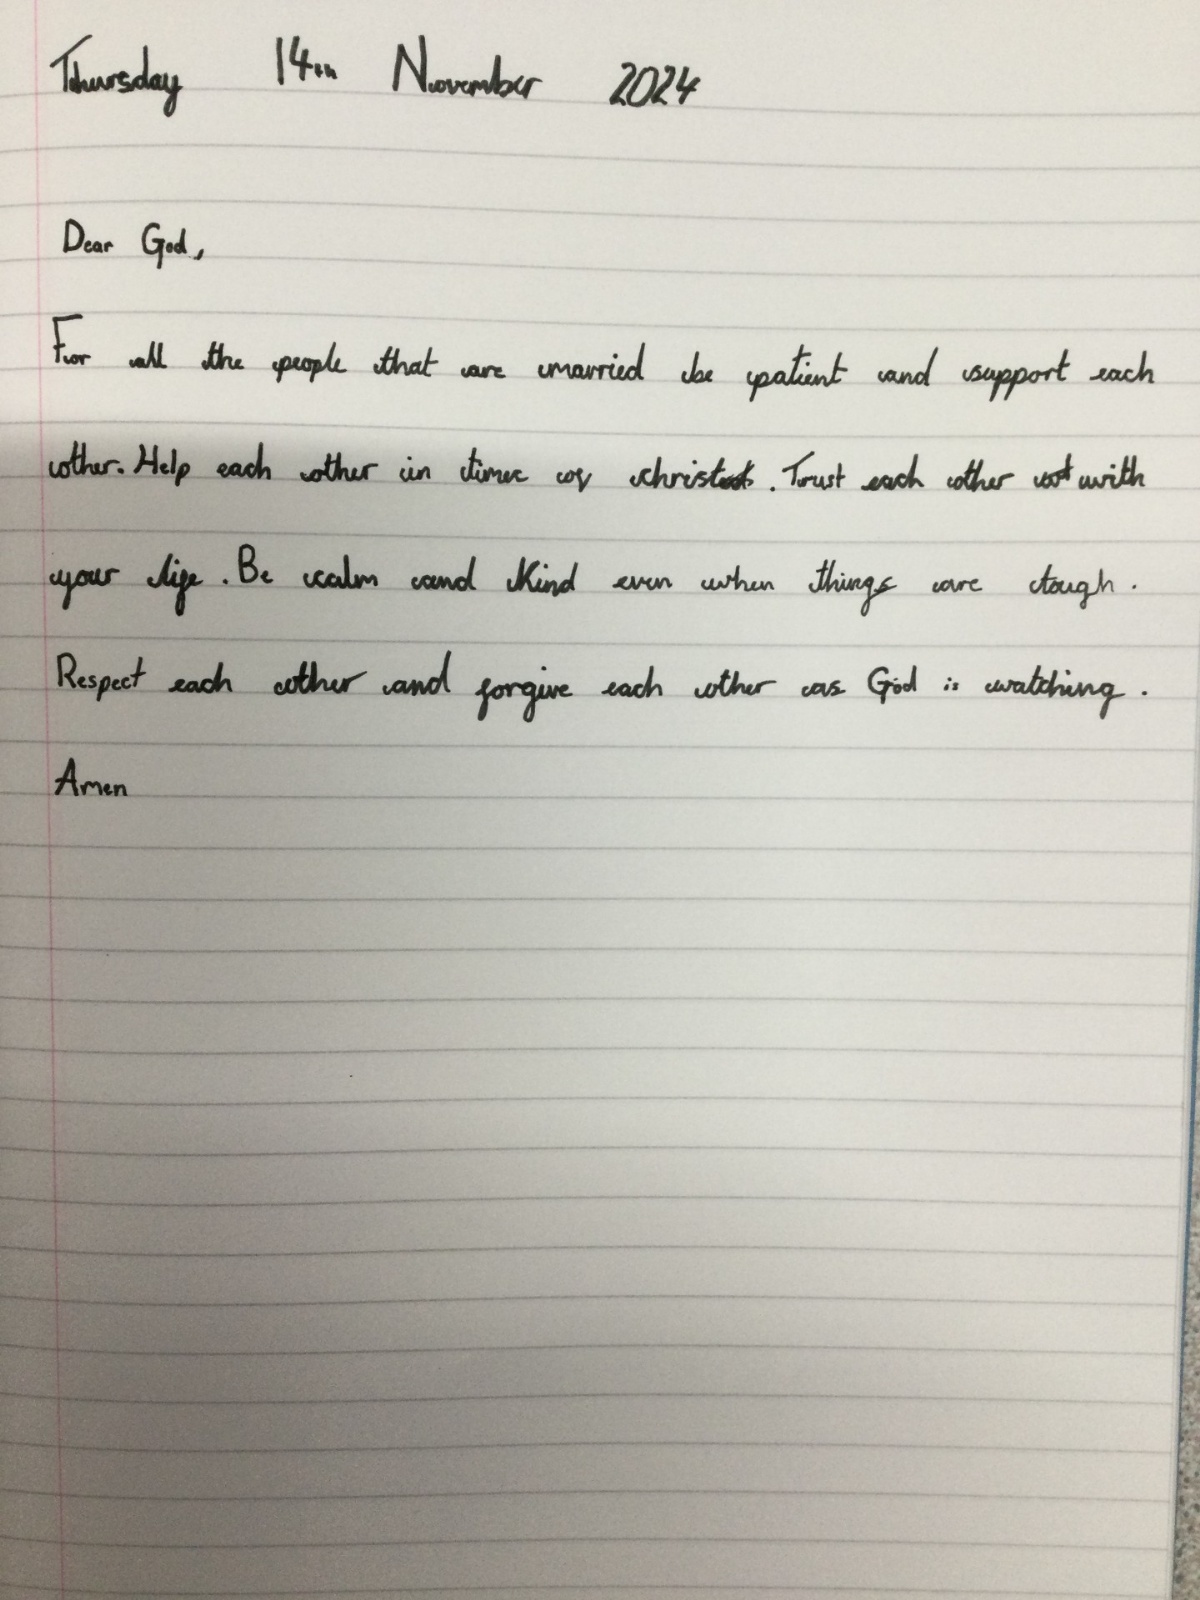 Thursday 14th November 2024
Dear God,
For all the people that are married be patient and support each
other. Help each other in time of christ. Trust each other with
your life. Be calm and kind even when things are tough.
Respect each other and forgive each other as God is watching.
Amen